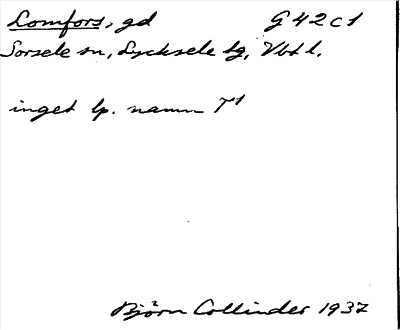 Lomfors, gd G 42 c 1
Sorsele sn, Lycksele lg, Vbtl.
inget lp. namn T1
Björn Collinder 1937